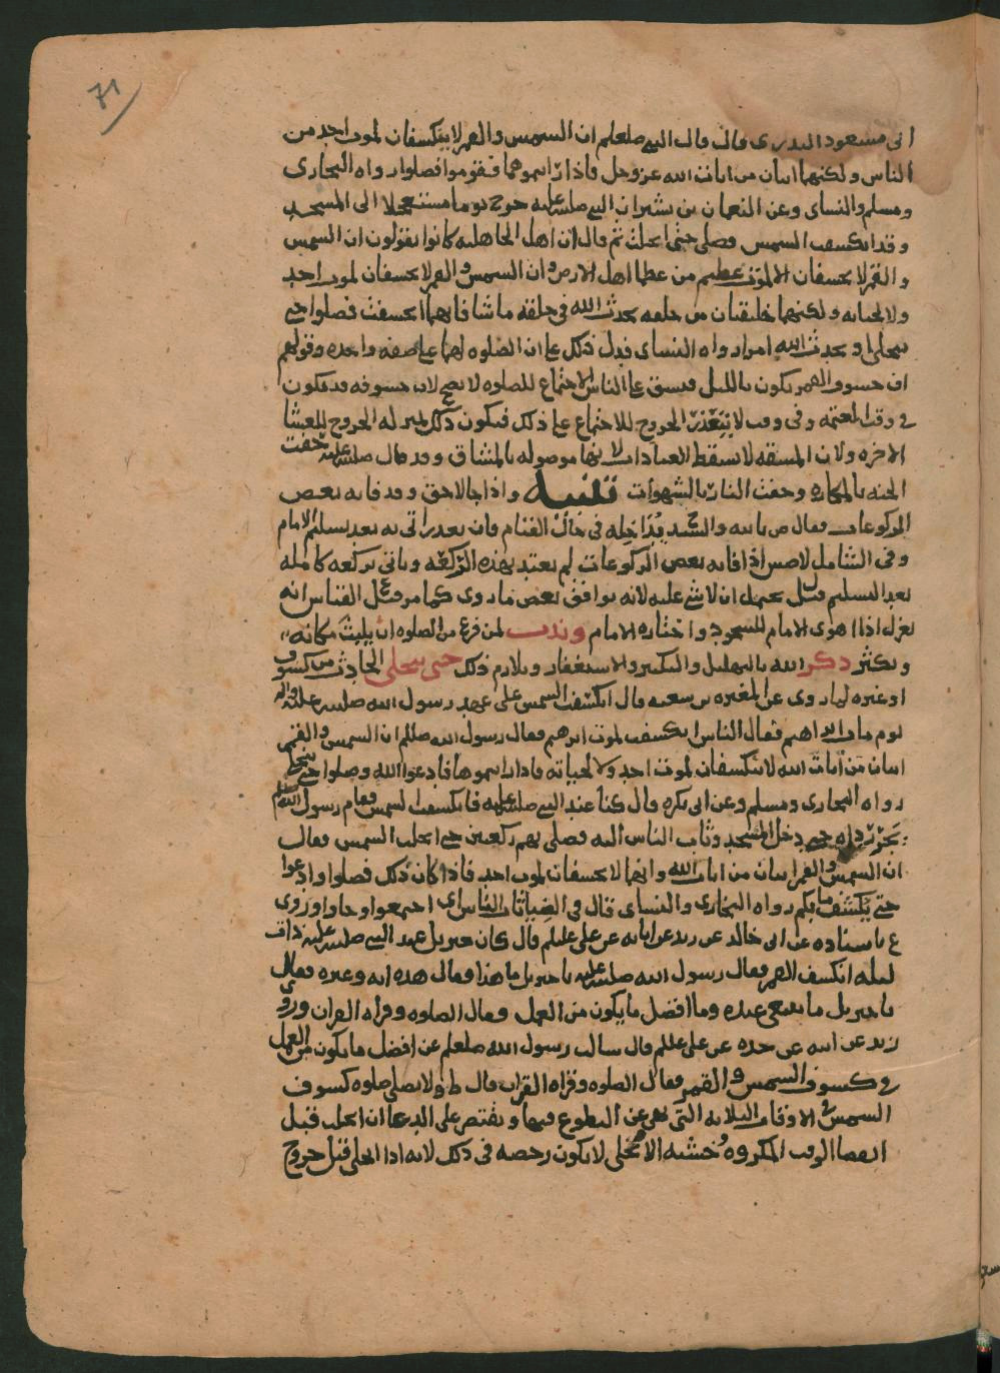 71
ابى مسعود البدرى قال قال النبي صلعلم ان الشمس والقمر لا ينكسفان لموت احد من
الناس ولكنهما ايتان من ايات الله عز وجل فاذا رايتموهما فقوموا فصلوا رواه البخارى
ومسلم والنساى وعن النعمان بن بشير ان النبي صلى الله عليه خرج يوما مستعجلا الى المسجد
وقد انكسفت الشمس فصلى حتى انجلت ثم قال ان اهل الجاهليه كانوا يقولون ان الشمس
والقمر لا يخسفان الا لموت عظيم من عظما اهل الارض وان الشمس والقمر لا يخسفان لموت احد
ولا لحياته ولكنهما خليقتان من خلقه يحدث الله فى خلقه ما شا فايهما انخسفت فصلوا حتى
ينجلى او يحدث الله امرا رواه النساى فدل ذلك على ان الصلوه لهما على صفه واحده وقولهم
ان خسوف القمر يكون بالليل فيشق على الناس الاجتماع للصلوه لا يصح لان خسوفه قد يكون
فى وقت العتمه وفى وقت لا يتعذر الخروج للاجتماع على ذلك فيكون ذلك كمن له الخروج للعشا
الاخره ولان المشقه لا تسقط العبادات لانها موصوله بالمشاق وقد قال صلى الله عليه حفت
الجنه بالمكاره وحفت النار بالشهوات تنبيه واذا جا لاحق وقد فاته بعض
الركوعات فقال ص بالله والسيد يدا خله فى حال القيام فان تعذر اتى به بعد تسليم الامام
وفى الشامل لاصش اذا فاته بعض الركوعات لم يعتد بهذه الركعه وياتى بركعه كامله
بعد التسليم قيل يحتمل ان لا شي عليه لانه يوافق بعض ما روى كما مر قيل القياس انه
يعزل اذا اهوى الامام للسجود واختاره الامام وندب لمن فرغ من الصلوه ان يلبث مكانه
ويكثر ذكر الله بالتهليل والتكبير والاستغفار ويلازم ذلك حتى ينجلى الحادث من كسوف
او غيره لما روى عن المغيره بن شعبه قال انكسفت الشمس على عهد رسول الله صلى الله عليه واله
يوم مات ابراهيم فقال الناس انكسفت لموت ابرهيم فقال رسول الله صللم ان الشمس والقمر
ايتان من ايات الله لا ينكسفان لموت احد ولا لحياته فاذا رايتموها فادعوا الله وصلوا حتى ينجلى
رواه البخارى ومسلم وعن ابى بكره قال كنا عند النبي صلى الله عليه فانكسفت الشمس فقام رسول الله
يجر رداه حتى دخل المسجد وثاب الناس اليه فصلى بهم ركعتين حتى انجلت الشمس فقال
ان الشمس والقمر ايتان من ايات الله وانهما لا يخسفان لموت احد فاذا كان ذلك فصلوا وادعوا
حتى ينكشف ما بكم رواه البخارى والنساى قال فى الضيا ثاب الناس اى اجتمعوا وجاوا وروى
ع باسناده عن ابى خالد عن زيد عن ابائه عن على عليلم قال كان جبريل عند النبي صلى الله عليه ذات
ليله انكسف القمر فقال رسول الله صلى الله عليه يا جبريل ما هذا فقال هذه ايه وعبره فقال
يا جبريل ما ينبغى عنده وما افضل ما يكون من العمل فقال الصلوه وقراه القران وروى
زيد عن ابيه عن جده عن على عليلم قال سالت رسول الله صلعلم عن افضل ما يكون من العمل
فى كسوف الشمس والقمر فقال الصلوه وقراه القران قال ط ولا يصلى صلوه كسوف
الشمس فى الاوقات الثلاثه التى نهى عن التطوع فيها ويقتصر على الدعا ان انجلت قبل
انقضا الوقت المكروه وخشيه الانجلى لا يكون رخصه فى ذلك لانه اذا انجلى قبل خروج